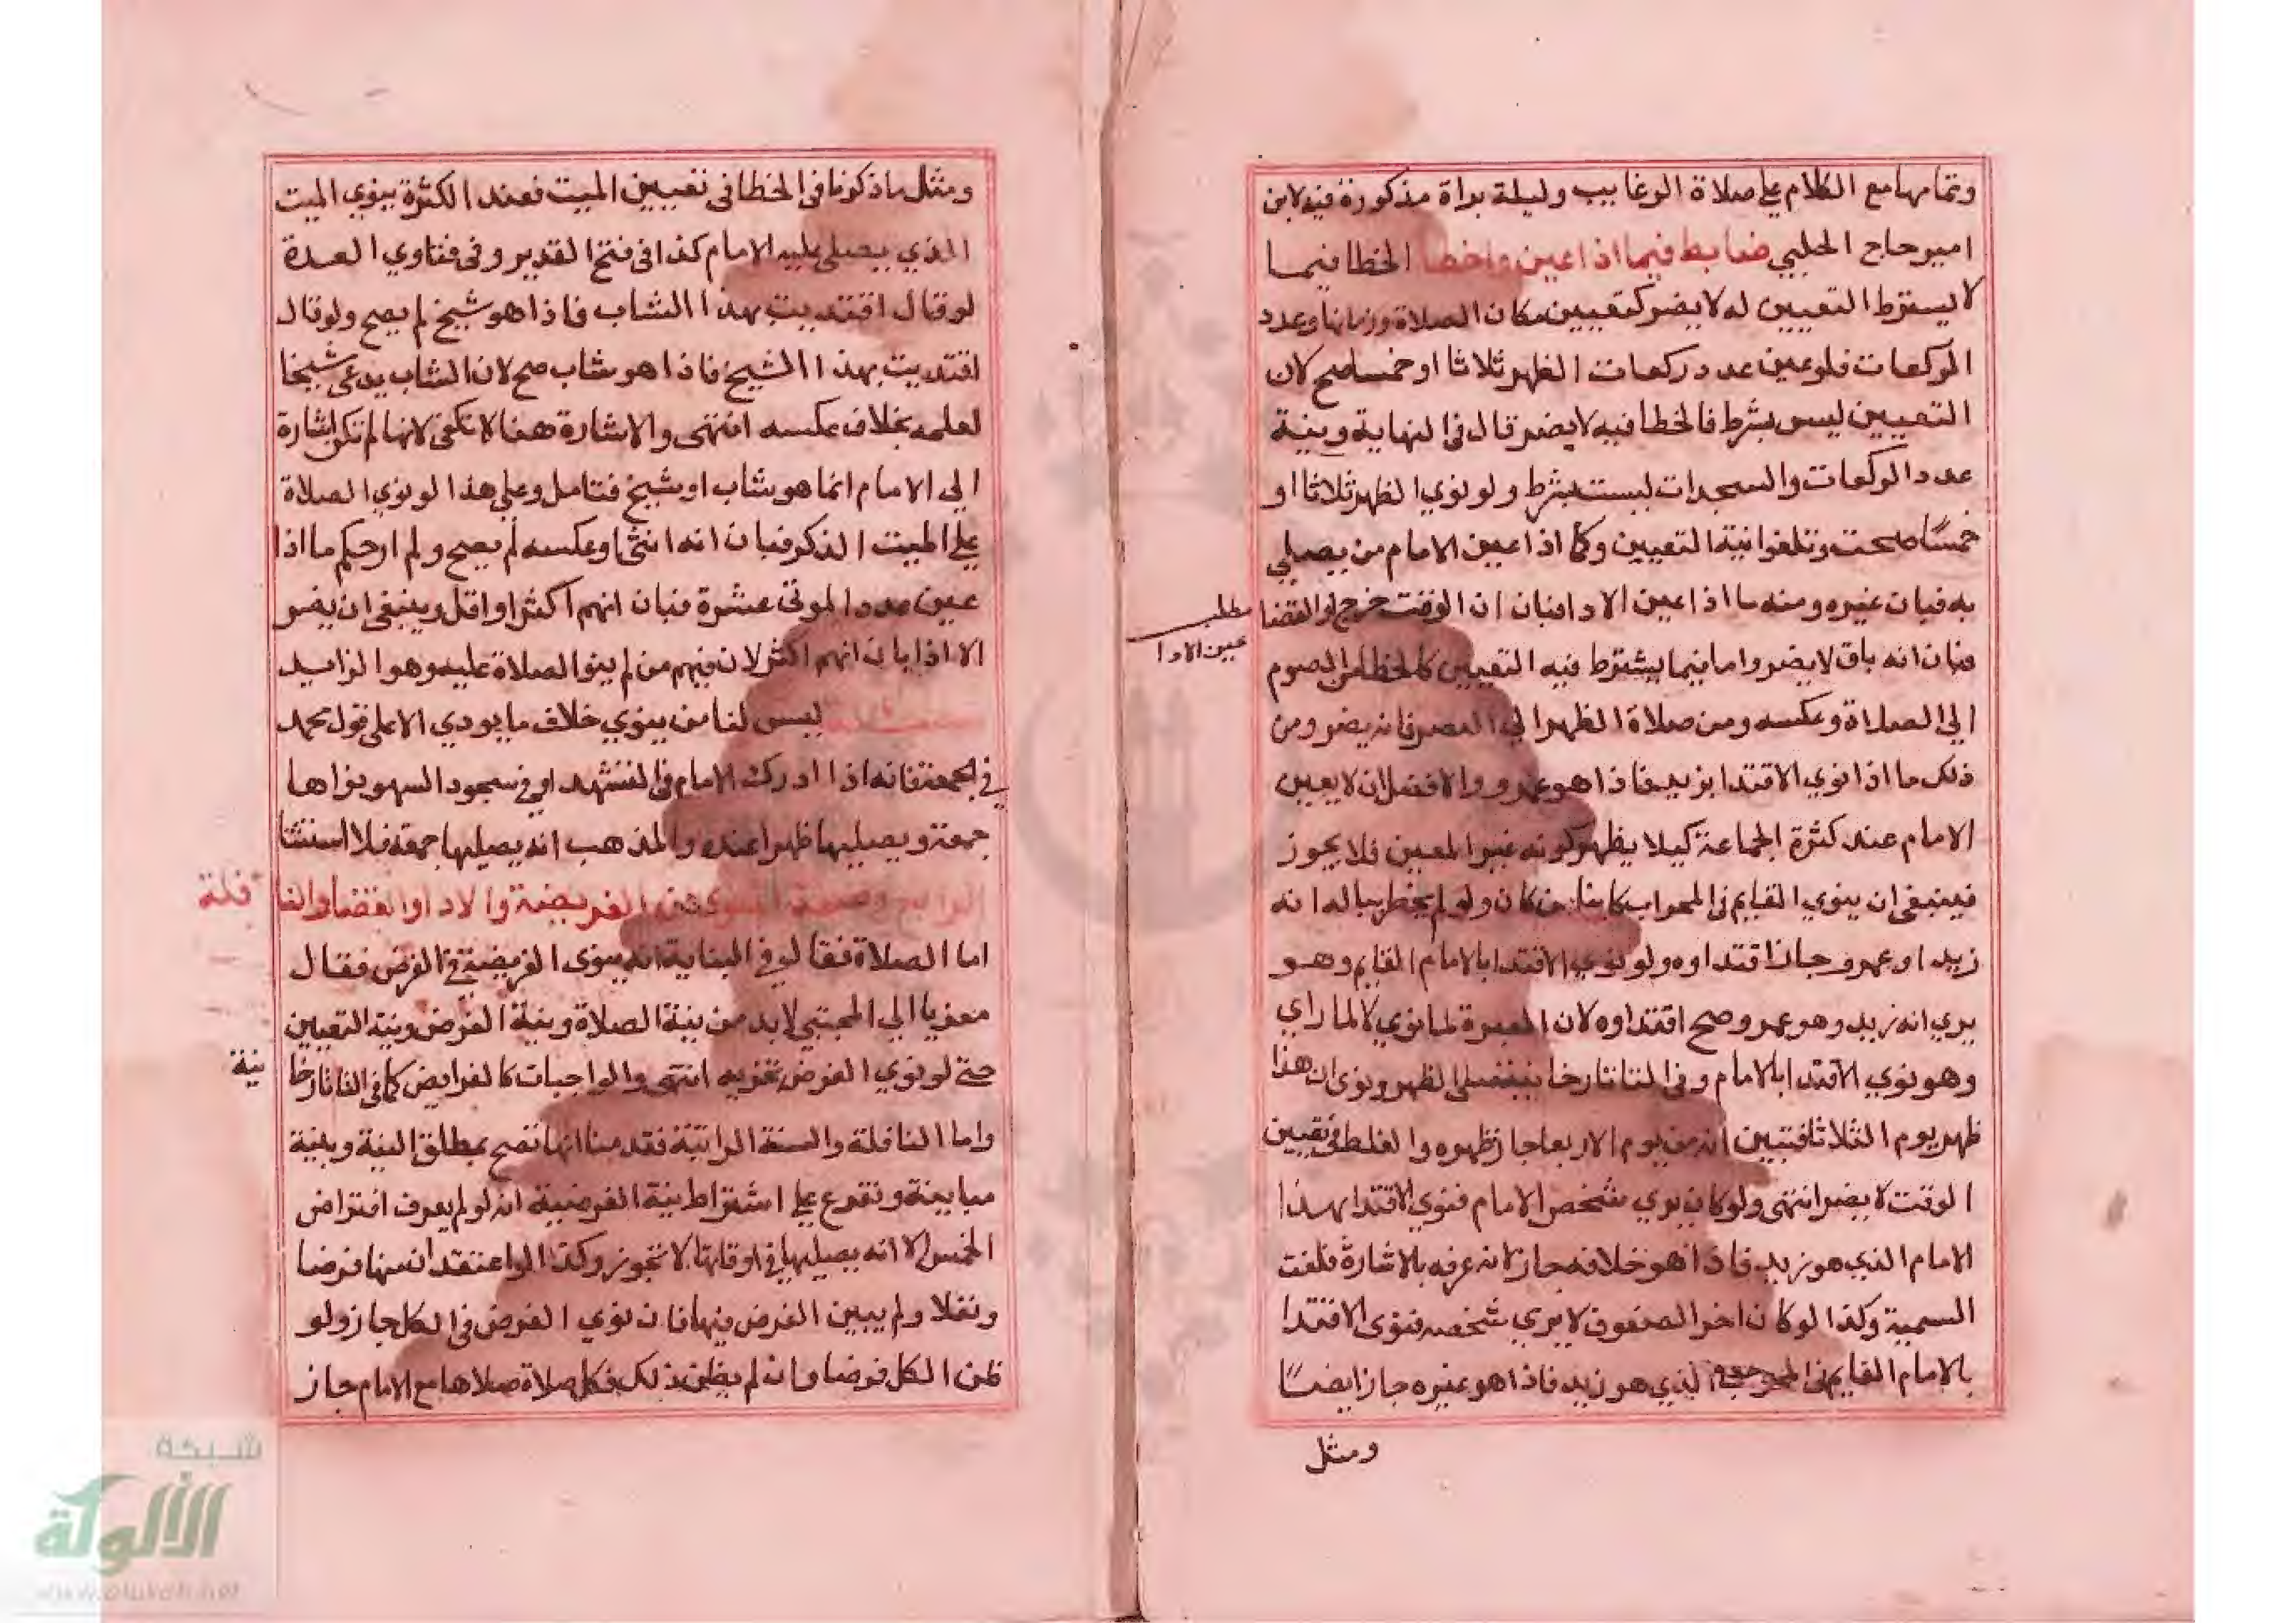 وتمامها مع الكلام على صلاة الرغايب وليلة براة مذكورة فيه لابن
امير حاج الحلبي ضابط فيما اذا عين واخطا الخطا فيما
لا يشترط التعيين له لا يضر كتعيين مكان الصلاة وزمانها وعدد
الركعات فلو عين عدد ركعات الظهر ثلاثا او خمسا صح لان
التعيين ليس بشرط فالخطا فيه لا يضر قال في النهاية ونية
عدد الركعات والسجدات ليست بشرط ولو نوي الظهر ثلاثا او
خمسًا صحت وتلغوا نية التعيين وكما اذا عين الامام من يصلي
به فبان غيره ومنه ما اذا عين الادا فبان ان الوقت خرج او القضا
مطلب
عين الادا
فبان انه باق لا يضر واما فيما يشترط فيه التعيين كالخطا من الصوم
الي الصلاة وعكسه ومن صلاة الظهر الي العصر فانه يضر ومن
ذلك ما اذا نوي الاقتدا بزيد فاذا هو عمرو والافضل ان لا يعين
الامام عند كثرة الجماعة كيلا يظهر كونه غير المعين فلا يجوز
فينبغي ان ينوي القايم في المحراب كاينا من كان ولو لم يخطر بباله انه
زيد او عمرو جاز اقتداوه ولو نوي الاقتدا بالامام القايم وهو
يري انه زيد وهو عمرو صح اقتداوه لان العبرة لما نوي لا لما راي
وهو نوي الاقتدا بالامام وفي التاتارخانية صلى الظهر ونوى ان هذا
ظهر يوم الثلاثا فتبين انه من يوم الاربعا جاز ظهره والغلط في تعيين
الوقت لا يضر انتهى ولو كان يري شخص الامام فنوي الاقتدا بهذا
الامام الذي هو زيد فاذا هو خلافه جاز لانه عرفه بالاشارة فلغت
التسمية وكذا لو كان اخر الصفوف لا يري شخصه فنوى الاقتدا
بالامام القايم في المحراب الذي هو زيد فاذا هو غيره جاز ايضًا
ومثل
ومثل ماذكرنا في الخطا في تعيين الميت فعند الكثرة ينوي الميت
الذي يصلي عليه الامام كذا في فتح القدير وفي فتاوي العمدة
لو قال اقتديت بهذا الشاب فاذا هو شيخ لم يصح ولو قال
اقتديت بهذا الشيخ فاذا هو شاب صح لان الشاب يدعى شيخا
لعلمه بخلاف عكسه انتهى والاشارة هنا لا تكفي لانها لم تكن اشارة
الي الامام انما هو شاب او شيخ فتامل وعلي هذا لو نوي الصلاة
علي الميت الذكر فبان انه انثى او عكسه لم يصح ولم ار حكم ما اذا
عين عدد الموتى عشرة فبان انهم اكثر او اقل وينبغي ان يضر
الا اذا بان انهم اكثر لان فيهم من لم ينو الصلاة عليه وهو الزايد
ليس لنا من ينوي خلاف ما يودي الا على قول محمد
في الجمعة فانه اذا ادرك الامام في التشهد او في سجود السهو نواها
جمعة ويصليها ظهرا عنده والمذهب انه يصليها جمعة فلا استثنا
الرابع في صفة المنوي من الفريضة والادا والقضا والنا فلة
اما الصلاة فقال في البناية انه ينوي الفريضة في الفرض فقال
معزيا الي المجتبي لا بد من نية الصلاة ونية الفرض ونية التعيين
حتى لو نوي الفرض تجزيه انتهى والواجبات كالفرايض كما في التاتارخا نية
واما النافلة والسنة الراتبة فقدمنا انها تصح بمطلق النية وبنية
مباينة وتفرع علي اشتراط نية الفرضية انه لو لم يعرف افتراض
الخمس الا انه يصليها في اوقاتها لا تجوز وكذا لو اعتقد ان منها فرضا
ونفلا ولم يبين الفرض فيها فان نوي الفرض في الكل جاز ولو
ظن الكل فرضا وان لم يظن ذلك فكل صلاة صلاها مع الامام جاز
شبكة
الألوكة
www.alukah.net